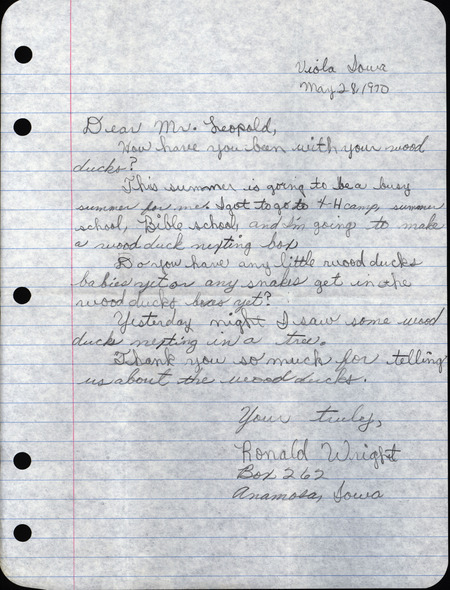 Viola Iowa
May 28, 1970
Dear Mr. Leopold,
How have you been with your wood
ducks?
This summer is going to be a busy
summer for me. I got to go to 4-H camp, summer
school, Bible school, and I'm going to make
a wood duck nesting box.
Do you have any little wood ducks
babies yet or any snakes get in the
wood ducks boxes yet?
Yesterday night I saw some wood
ducks nesting in a tree.
Thank you so much for telling
us about the wood ducks.
Your truly,
Ronald Wright
Box 262
Anamosa, Iowa